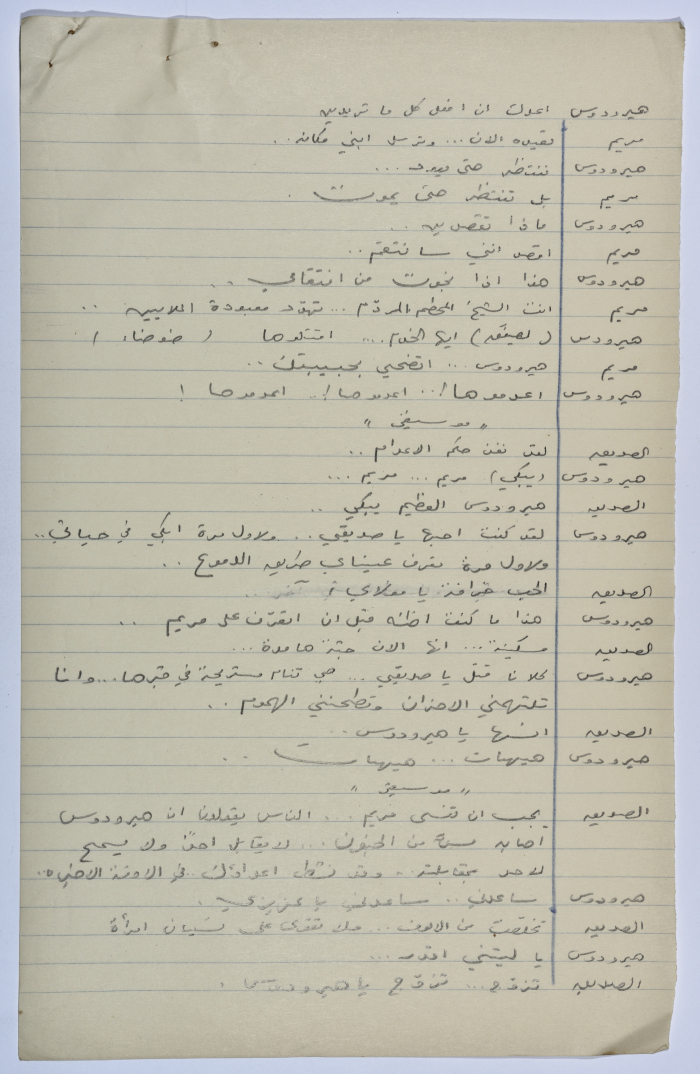 هيرودوس اعدك ان افعل كل ما تريدين
مريم تقيده الان ... وترسل ابني مكانه ..
هيرودوس ننتظر حتى يعود ...
مريم بل تنتظر حتى يموت .
هيرودوس ماذا تقصدين ...
مريم اقصد انني سأنتقم ..
هيرودوس هذا اذا نجوت من انتقامي ..
مريم انت الشيخ المحطم المردّم ... تهدد معبودة الملايين ..
هيرودس ( يصفق ) ايها الخدم .... اقتلوها ( ضوضاء )
مريم هيرودوس ... اتضحي بحبيبتك ..
هيرودوس اعدموها ! .. اعدموها ! .. اعدموها !
" موسيقى "
الصديق لقد نفذ حكم الاعدام ..
هيرودوس ( يبكي ) مريم ... مريم ...
الصديق هيرودوس العظيم يبكي ..
هيرودوس لقد كنت احبها يا صديقي .. ولاول مرة ابكي في حياتي ..
ولاول مرة تعرف عيناي طريق الدموع ..
الصديق الحب خرافة يا مولاي
هيرودوس هذا ما كنت اظنه قبل ان اتعرّف على مريم ..
الصديق مسكينة ... انها الان جثة هامدة ...
هيرودوس كلانا قتل يا صديقي ... هي تنام مستريحة في قبرها ... وانا
تلتهمني الاحزان وتطحنني الهموم ..
الصديق انسها يا هيرودوس ..
هيرودوس هيهات ... هيهات ..
" موسيقى "
الصديق يجب ان تنسى مريم ... الناس يقولون ان هيرودوس
اصابه مسّ من الجنون ... لا يقابل احداً ولا يسمح
لاحد بمقابلته .. وقد نشط اعداؤك في الاونة الاخيرة ..
هيرودوس ساعدني .. ساعدني يا عزيزي .
الصديق تخلصت من الالوف ... ولا تقوى على نسيان امرأة
هيرودوس يا ليتني اقدر ...
الصديق تزوّج ... تزوّج يا هيرودوس .